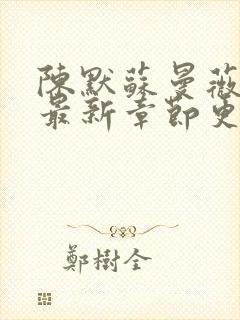 陳默蘇曼薇
最新章節更
鄭樹全